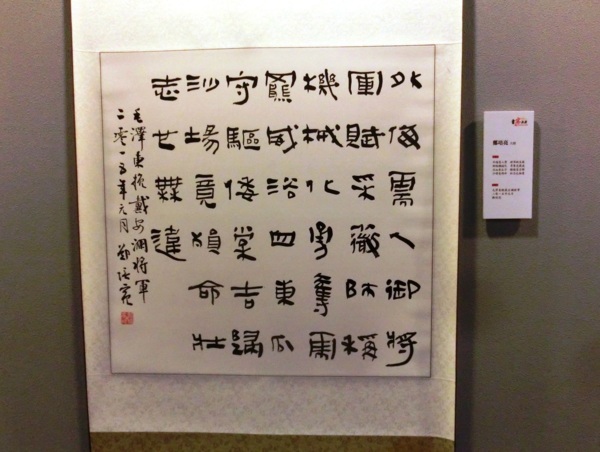 外侮需人御將
軍賦采薇師稱
機械化勇奪虎
羆威浴血東瓜
守驅倭棠吉歸
沙場竟殞命壯
志也無違
毛澤東挽戴安瀾將軍
二零一五年元月